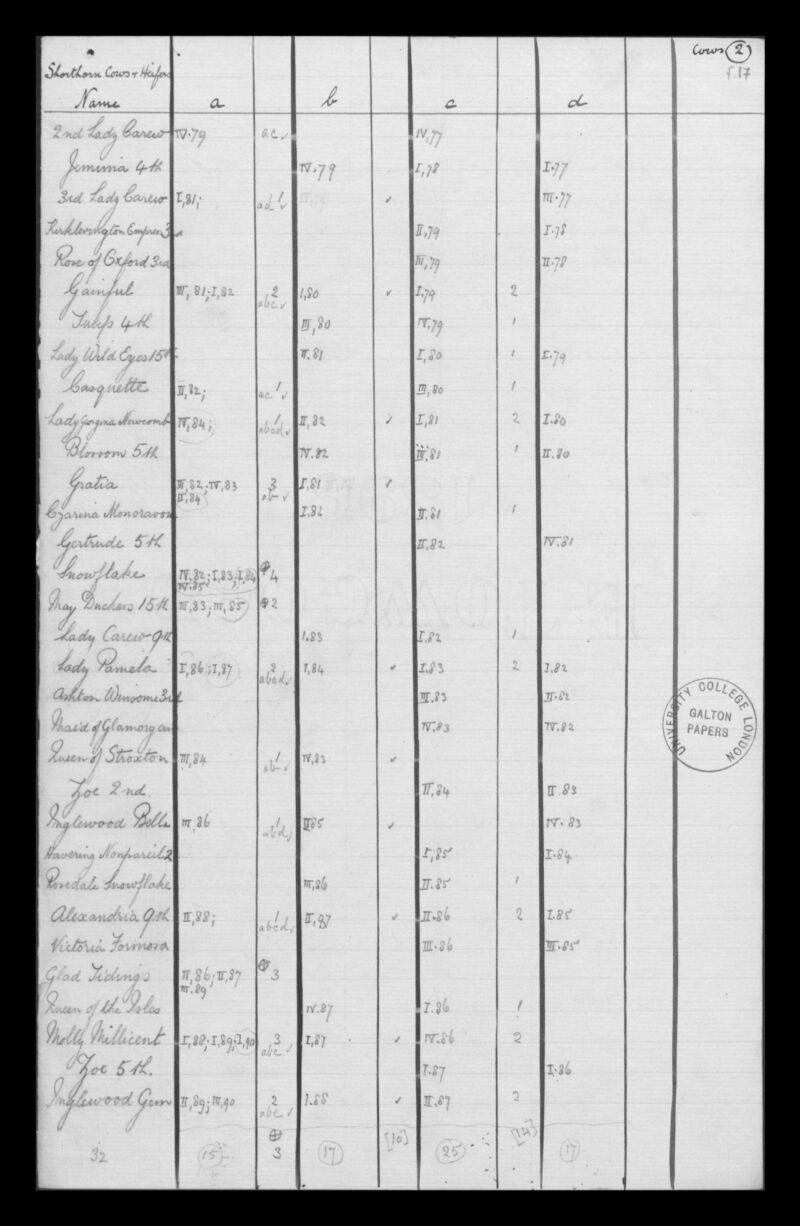 Cows 2
f.17
Shorthorn Cows + Heifers
Name a b c d
2nd Lady Carew IV.79 ac ✓ IV,77
Jemima 4th IV.79 I,78 I.77
3rd Lady Carew I,81; 1 ad ✓ ✓ III.77
Kirklevington Empress 3rd II,79 I.78
Rose of Oxford 3rd III,79 II.78
Gainful III,81; I,82 2 abc ✓ I,80 ✓ I.79 2
Tulip 4th III,80 IV.79 1
Lady Wild Eyes 15th II.81 I,80 1 I.79
Casquette II,82; 1 ac ✓ III,80 1
Lady Georgina Newcomb IV,84; 1 abcd ✓ II,82 ✓ I,81 2 I.80
Blossom 5th IV.82 III.81 1 II.80
Gratia III,82; IV,83 3 I,81 ✓
II,84; ab ✓
Czarina Monoravon I.82 II.81 1
Gertrude 5th II,82 IV.81
Snowflake IV.82; I,83; I.84 ⊕ 4
IV.85
May Duchess 15th III,83; III,85 ⊕ 2
Lady Carew 9th I.83 I.82 1
Lady Pamela I,86; I,87 2 abcd ✓ I,84 ✓ I.83 2 I.82
Ashton Winsome 3rd III.83 II.82
Maid of Glamorgan IV.83 IV.82
Queen of Stroxton III,84 1 ab ✓ IV,83 ✓
Zoe 2nd. II,84 II.83
Inglewood Belle III,86 1 abd ✓ II 85 ✓ IV.83
Havering Nonpareil 2 I,85 I.84
Rosedale Snowflake III,86 II.85 1
Alexandria 9th II,88; 1 abcd ✓ II,87 ✓ II.86 2 I.85
Victoria Formosa III.86 III.85
Glad Tidings II,86; II,87 ⊕ 3
III.89
Queen of the Isles IV.87 I.86 1
Molly Millicent I,88; I,89; I,90 3 abc ✓ I,87 ✓ IV.86 2
Zoe 5th. I.87 I.86
Inglewood Gem II,89; III,90 2 abc ✓ I.88 ✓ II.87 2
32 15 ⊕ 3 17 [10] 25 [14] 17
UNIVERSITY COLLEGE LONDON
GALTON
PAPERS